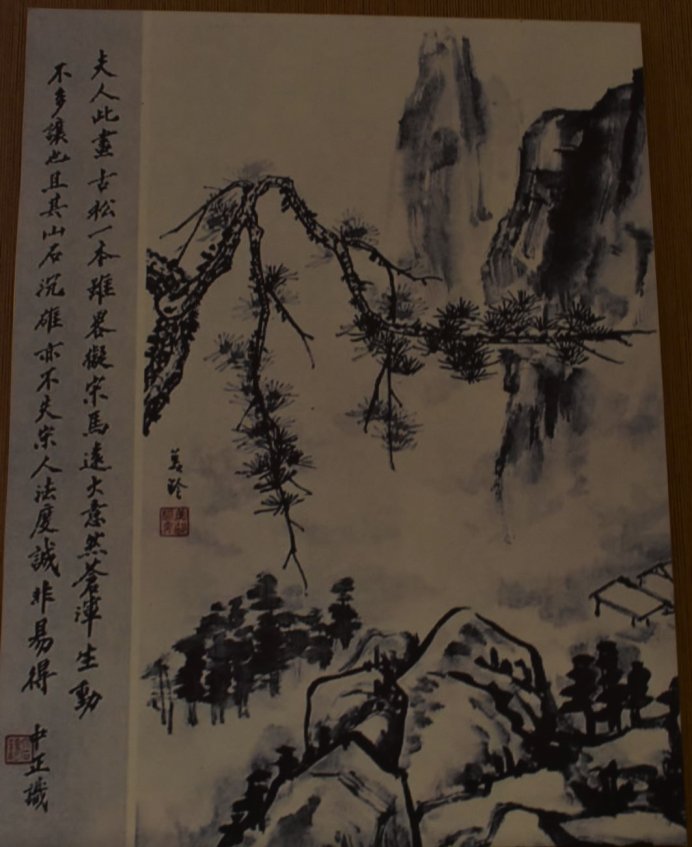 夫人此畫古松一本雖畧擬宋馬遠大意然蒼渾生動
不多讓也且其山石沉雄亦不失宋人法度誠非易得
中正識
美齡